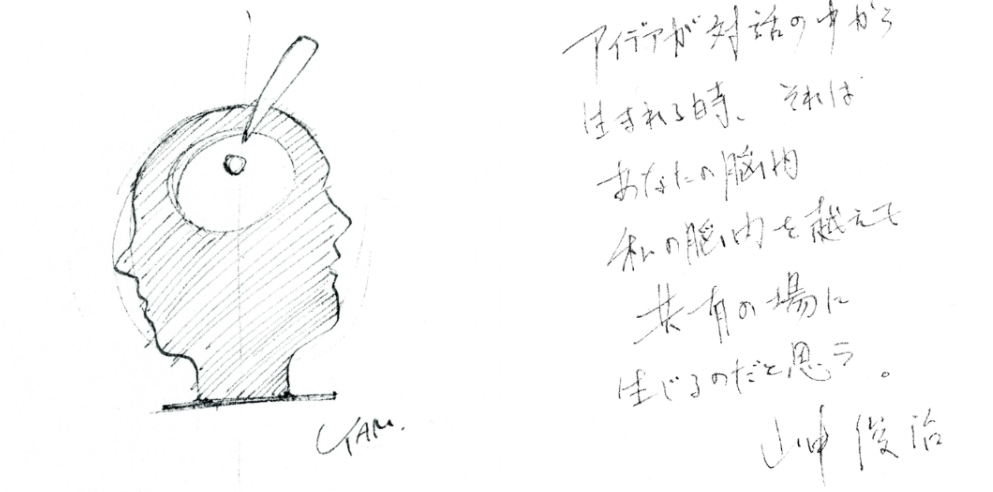 アイデアが対話の中から
生まれる時、それは
あなたの脳内
私の脳内を越えて
共有の場に
生じるのだと思う。
山中俊治